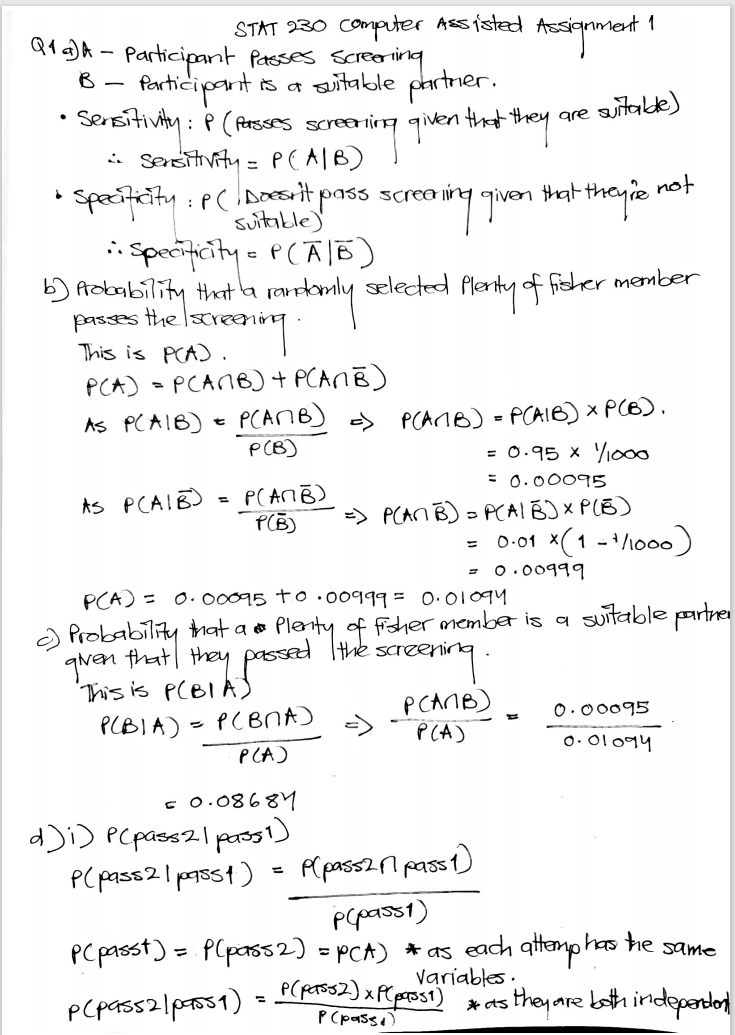 STAT 230 Computer Assisted Assignment 1
Q1 a) A – Participant Passes Screening
B – Participant is a suitable partner.
• Sensitivity : P (Passes screening given that they are suitable)
∴ Sensitivity = P(A|B)
• Specificity : P( Doesn't pass screening given that they're not
suitable)
∴ Specificity = P(Ā|B̄)
b) Probability that a randomly selected Plenty of fisher member
passes the screening.
This is P(A).
P(A) = P(A∩B) + P(A∩B̄)
As P(A|B) = P(A∩B) / P(B) => P(A∩B) = P(A|B) × P(B).
= 0.95 × 1/1000
= 0.00095
As P(A|B̄) = P(A∩B̄) / P(B̄) => P(A∩B̄) = P(A|B̄) × P(B̄)
= 0.01 × (1 - 1/1000)
= 0.00999
P(A) = 0.00095 + 0.00999 = 0.01094
c) Probability that a Plenty of fisher member is a suitable partner
given that they passed the screening.
This is P(B|A)
P(B|A) = P(B∩A) / P(A) => P(A∩B) / P(A) = 0.00095 / 0.01094
= 0.08684
d) i) P(pass2|pass1)
P(pass2|pass1) = P(pass2∩pass1) / P(pass1)
P(pass1) = P(pass2) = P(A) * as each attemp has the same
variables.
P(pass2|pass1) = P(pass2) × P(pass1) / P(pass1) * as they are both independent